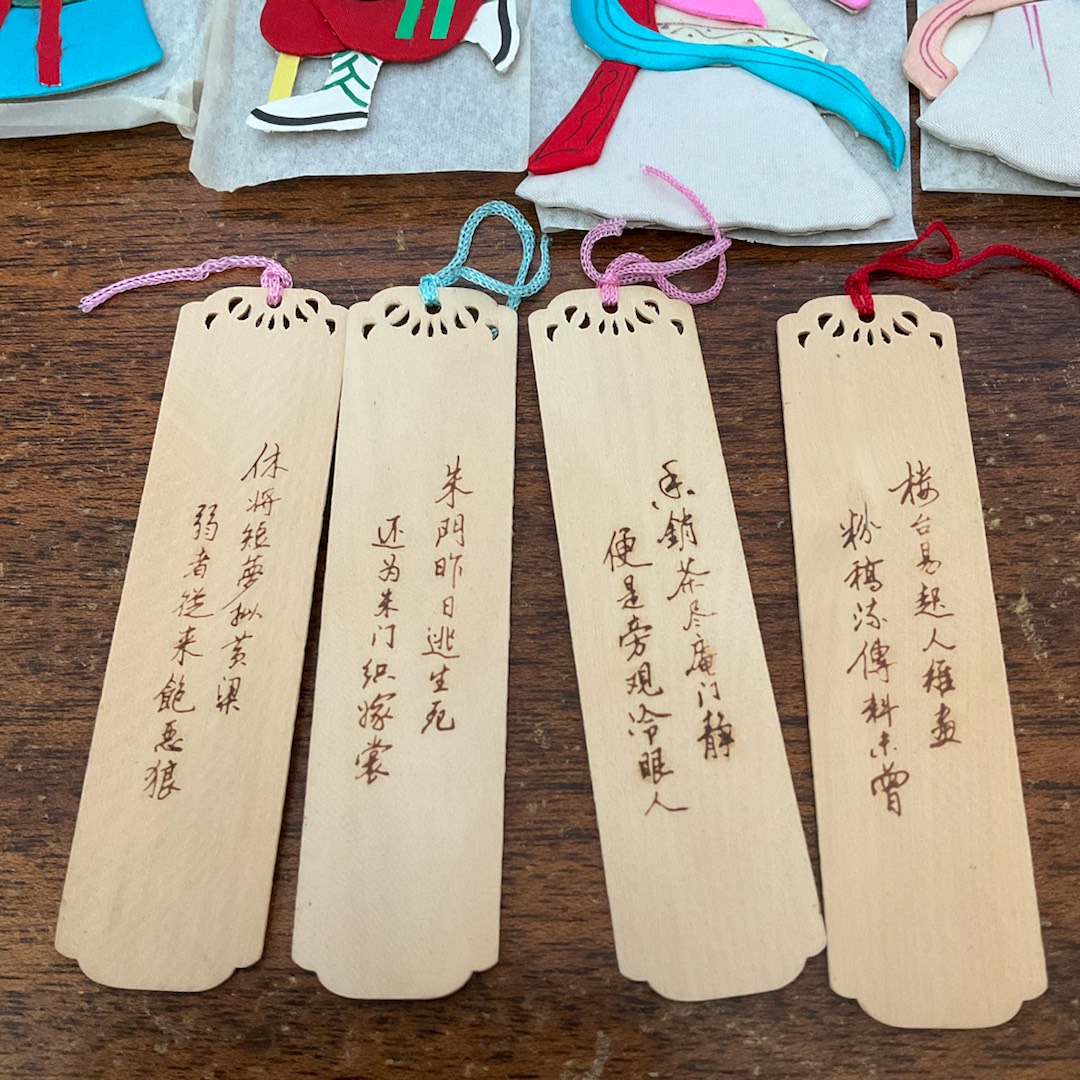 休将短夢拟黄粱
弱者從来飽恶狼
朱門昨日逃生死
还为朱门织嫁裳
香銷茶尽庵门静
便是旁观冷眼人
楼台易起人难畫
粉稿流傳料未曾